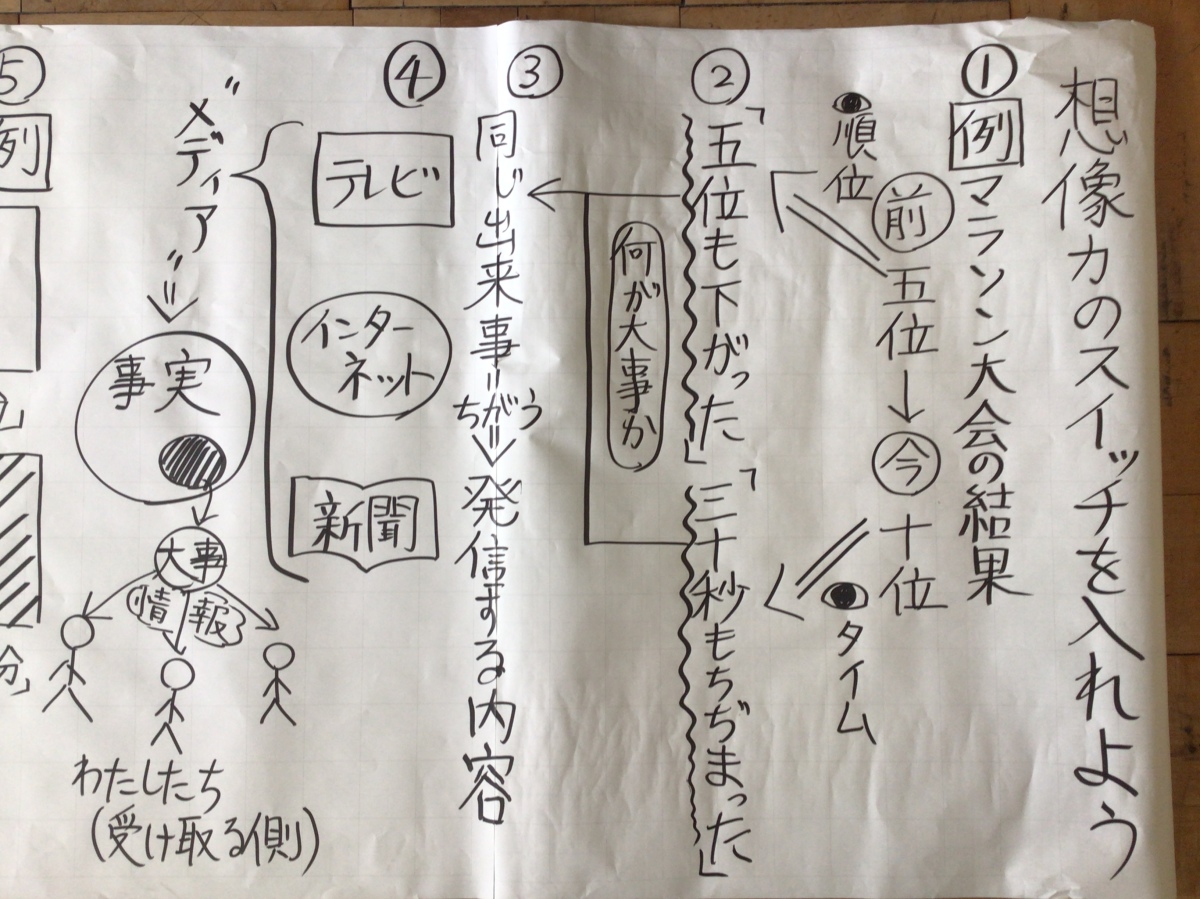 想像力のスイッチを入れよう
①
例 マラソン大会の結果
前 五位→今 十位
順位
タイム
②
「五位も下がった」「三十秒もちぢまった」
何が大事か
③
同じ出来事＝ちがう⇒発信する内容
④
テレビ
インターネット
新聞
〝メディア〟
事実
大事
情報
わたしたち
(受け取る側)
⑤
例